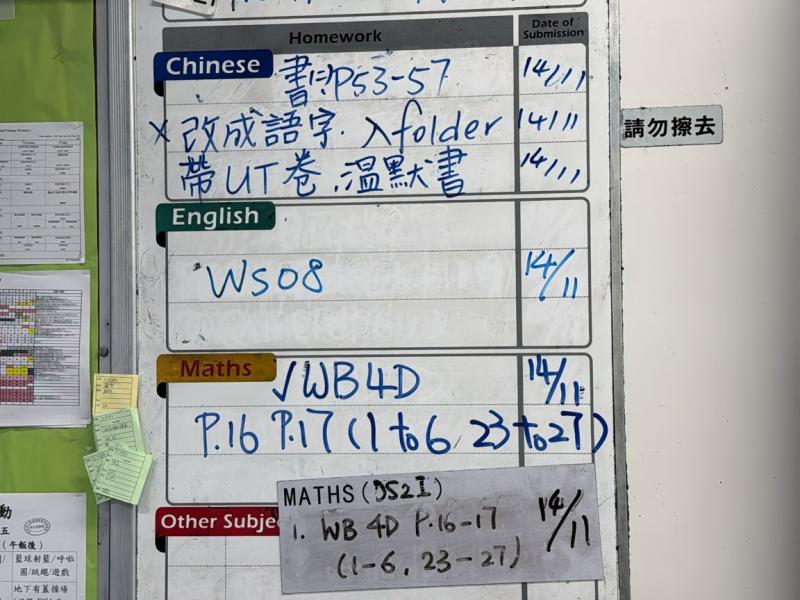 Homework
Date of Submission
Chinese
書(二)P53-57 14/11
x 改成語字. 入folder 14/11
帶UT卷.溫默書 14/11
請勿擦去
English
WS08 14/11
Maths
√WB4D 14/11
P.16 P.17 (1 to 6, 23 to 27)
Other Subje
MATHS (DS2I)
1. WB 4D P.16-17 14/11
(1-6, 23-27)
動
五
(午飯後)
籃球射籃/呼啦
圈/跳繩/遊戲
地下有蓋操場